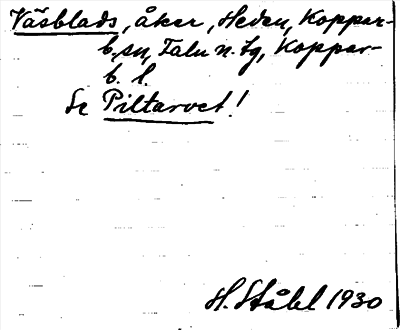 Våsblads, åker, Heden, Koppar-
b. sn, Falu n. tg, Koppar-
b. l.
Se Piltarvet!
H. Ståhl 1930